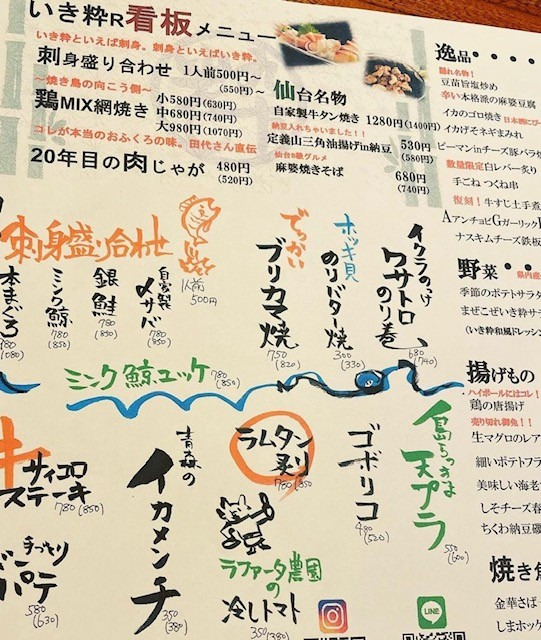 いき粋R看板メニュー
いき粋といえば刺身。刺身といえばいき粋。
刺身盛り合わせ 1人前500円〜
(550円)〜
〜焼き鳥の向こう側〜
鶏MIX網焼き
小580円(630円)
中680円(740円)
大980円(1070円)
コレが本当のおふくろの味。田代さん直伝
20年目の肉じゃが 480円
(520円)
仙台名物
自家製牛タン焼き 1280円(1400円)
納豆入れちゃいました!!
定義山三角油揚げin納豆 530円
(580円)
仙台B級グルメ
麻婆焼きそば 680円
(740円)
逸品・・・・
隠れ名物!
豆苗旨塩炒め
辛い本格派の麻婆豆腐
イカのゴロ焼き 日本酒にピー
イカげそネギまみれ
ピーマンinチーズ豚バラ
数量限定白レバー炙り
手ごね つくね串
復刻!牛すじ土手煮
AアンチョビGガーリック
ナスキムチーズ鉄板
野菜・・・
季節のポテトサラダ
まぜこぜいき粋サラ
(いき粋和風ドレッシン
揚げもの
ハイボールにはコレ!
鶏の唐揚げ
売り切れ御免!!
生マグロのレア
細いポテトフラ
美味しい海老
しそチーズ春
ちくわ納豆磯
焼き魚
金華さば
しまホッケ
刺身盛り合わせ
1人前
500円
本まぐろ
980
(1080)
ミンク鯨
780
(850)
銀鮭
780
(850)
自家製
〆サバ
780
(850)
でっかい
ブリカマ焼
750
(820)
ホッキ貝
のりバター焼
300
(330)
イクラのっけ
ワサトロ
のり巻
680
(740)
ミンク鯨ユッケ 780
(850)
サイコロ
ステーキ
780(850)
手づくり
ポテ
580
(630)
青森の
イカメンチ
350
(380)
ラムタン
炙り
780(850
ゴボリコ
480
(520)
島らっきょ
天プラ
550
(600)
ラファータ農園
の
冷しトマト
350(380)
LINE